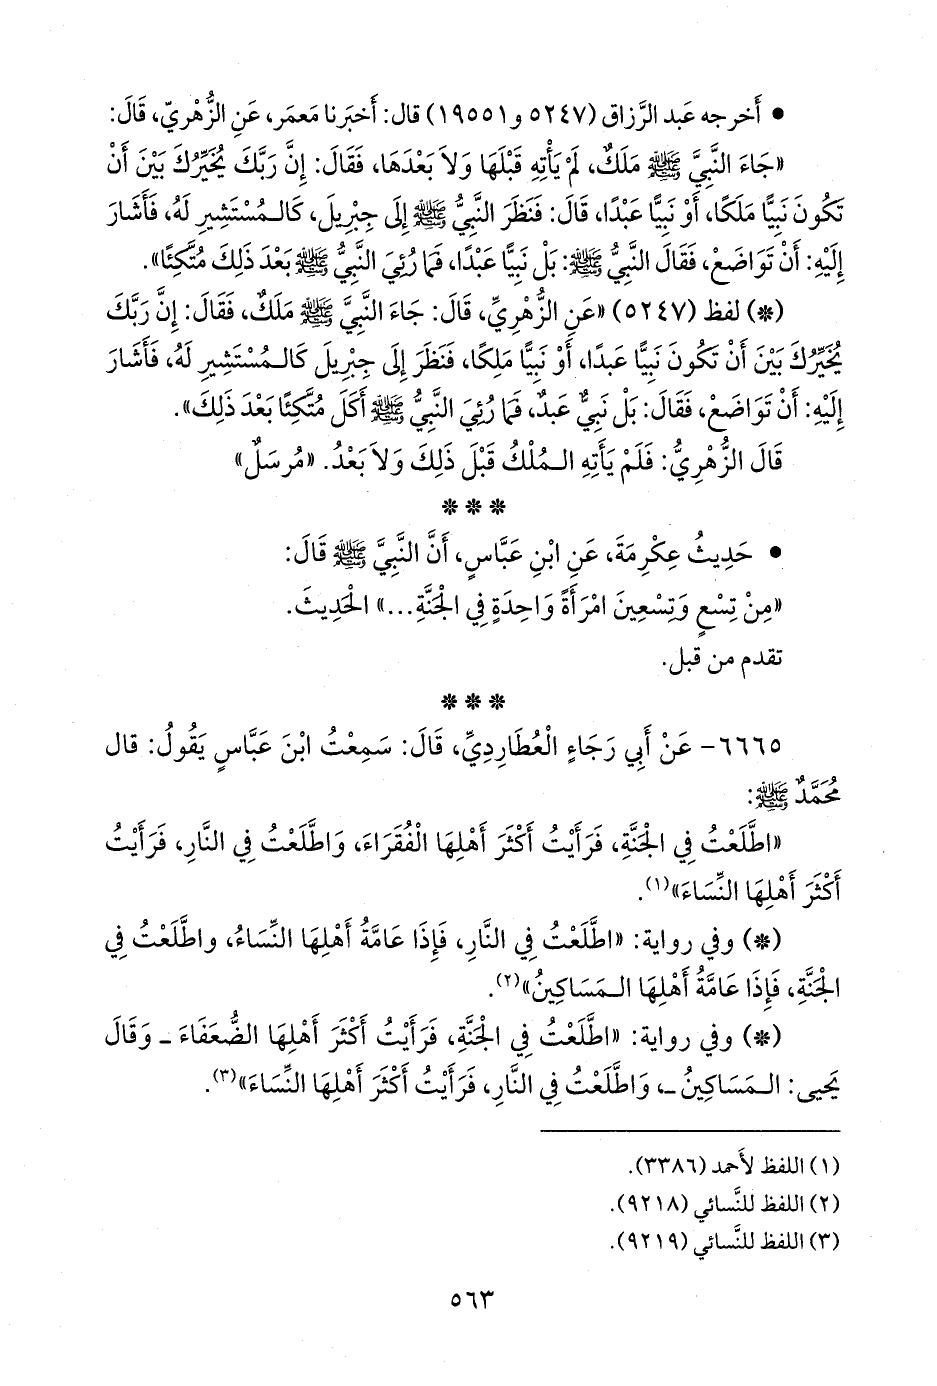 • أَخرجه عَبد الرَّزاق (٥٢٤٧ و١٩٥٥١) قال: أَخبَرنا مَعمَر، عَنِ الزُّهْريّ، قَالَ:
«جَاءَ النَّبِيَّ ﷺ مَلَكٌ، لَمْ يَأْتِهِ قَبْلَهَا وَلاَ بَعْدَهَا، فَقَالَ: إِنَّ رَبَّكَ يُخَيِّرُكَ بَيْنَ أَنْ
تَكُونَ نَبِيًّا مَلَكًا، أَوْ نَبِيًّا عَبْدًا، قَالَ: فَنَظَرَ النَّبِيُّ ﷺ إِلَى جِبْرِيلَ، كَالـمُسْتَشِيرِ لَهُ، فَأَشَارَ
إِلَيْهِ: أَنْ تَوَاضَعْ، فَقَالَ النَّبِيُّ ﷺ: بَلْ نَبِيًّا عَبْدًا، فَمَا رُئِيَ النَّبِيُّ ﷺ بَعْدَ ذَلِكَ مُتَّكِئًا».
(*) لفظ (٥٢٤٧) «عَنِ الزُّهْرِيِّ، قَالَ: جَاءَ النَّبِيَّ ﷺ مَلَكٌ، فَقَالَ: إِنَّ رَبَّكَ
يُخَيِّرُكَ بَيْنَ أَنْ تَكُونَ نَبِيًّا عَبدًا، أَوْ نَبِيًّا مَلِكًا، فَنَظَرَ إِلَى جِبْرِيلَ كَالـمُسْتَشِيرِ لَهُ، فَأَشَارَ
إِلَيْهِ: أَنْ تَوَاضَعْ، فَقَالَ: بَلْ نَبِيٌّ عَبدٌ، فَمَا رُئِيَ النَّبِيُّ ﷺ أَكَلَ مُتَّكِئًا بَعْدَ ذَلِكَ».
قَالَ الزُّهْرِيُّ: فَلَمْ يَأتِهِ الـمُلْكُ قَبْلَ ذَلِكَ وَلاَ بَعْدُ. «مُرسَلٌ»
* * *
• حَدِيثُ عِكْرِمَةَ، عَنِ ابْنِ عَبَّاسٍ، أَنَّ النَّبِيَّ ﷺ قَالَ:
«مِنْ تِسْعٍ وَتِسْعِينَ امْرَأَةً وَاحِدَةٍ فِي الْجَنَّةِ...» الحَدِيثَ.
تقدم من قبل.
* * *
٦٦٦٥- عَنْ أَبِي رَجَاءٍ الْعُطَارِدِيِّ، قَالَ: سَمِعْتُ ابْنَ عَبَّاسٍ يَقُولُ: قال
مُحَمَّدٌ ﷺ:
«اطَّلَعْتُ فِي الْجَنَّةِ، فَرَأَيْتُ أَكْثَرَ أَهْلِهَا الْفُقَرَاءَ، وَاطَّلَعْتُ فِي النَّارِ، فَرَأَيْتُ
أَكْثَرَ أَهْلِهَا النِّسَاءَ»(١).
(*) وفي رواية: «اطَّلَعْتُ فِي النَّارِ، فَإِذَا عَامَّةُ أَهْلِهَا النِّسَاءُ، واطَّلَعْتُ فِي
الْجَنَّةِ، فَإِذَا عَامَّةُ أَهْلِهَا الـمَسَاكِينُ»(٢).
(*) وفي رواية: «اطَّلَعْتُ فِي الْجَنَّةِ، فَرَأَيْتُ أَكْثَرَ أَهْلِهَا الضُّعَفَاءَ ـ وَقَالَ
يَحيى: الـمَسَاكِينُ ـ، وَاطَّلَعْتُ فِي النَّارِ، فَرَأَيْتُ أَكْثَرَ أَهْلِهَا النِّسَاءَ»(٣).
(١) اللفظ لأَحمد (٣٣٨٦).
(٢) اللفظ للنَّسائي (٩٢١٨).
(٣) اللفظ للنَّسائي (٩٢١٩).
٥٦٣